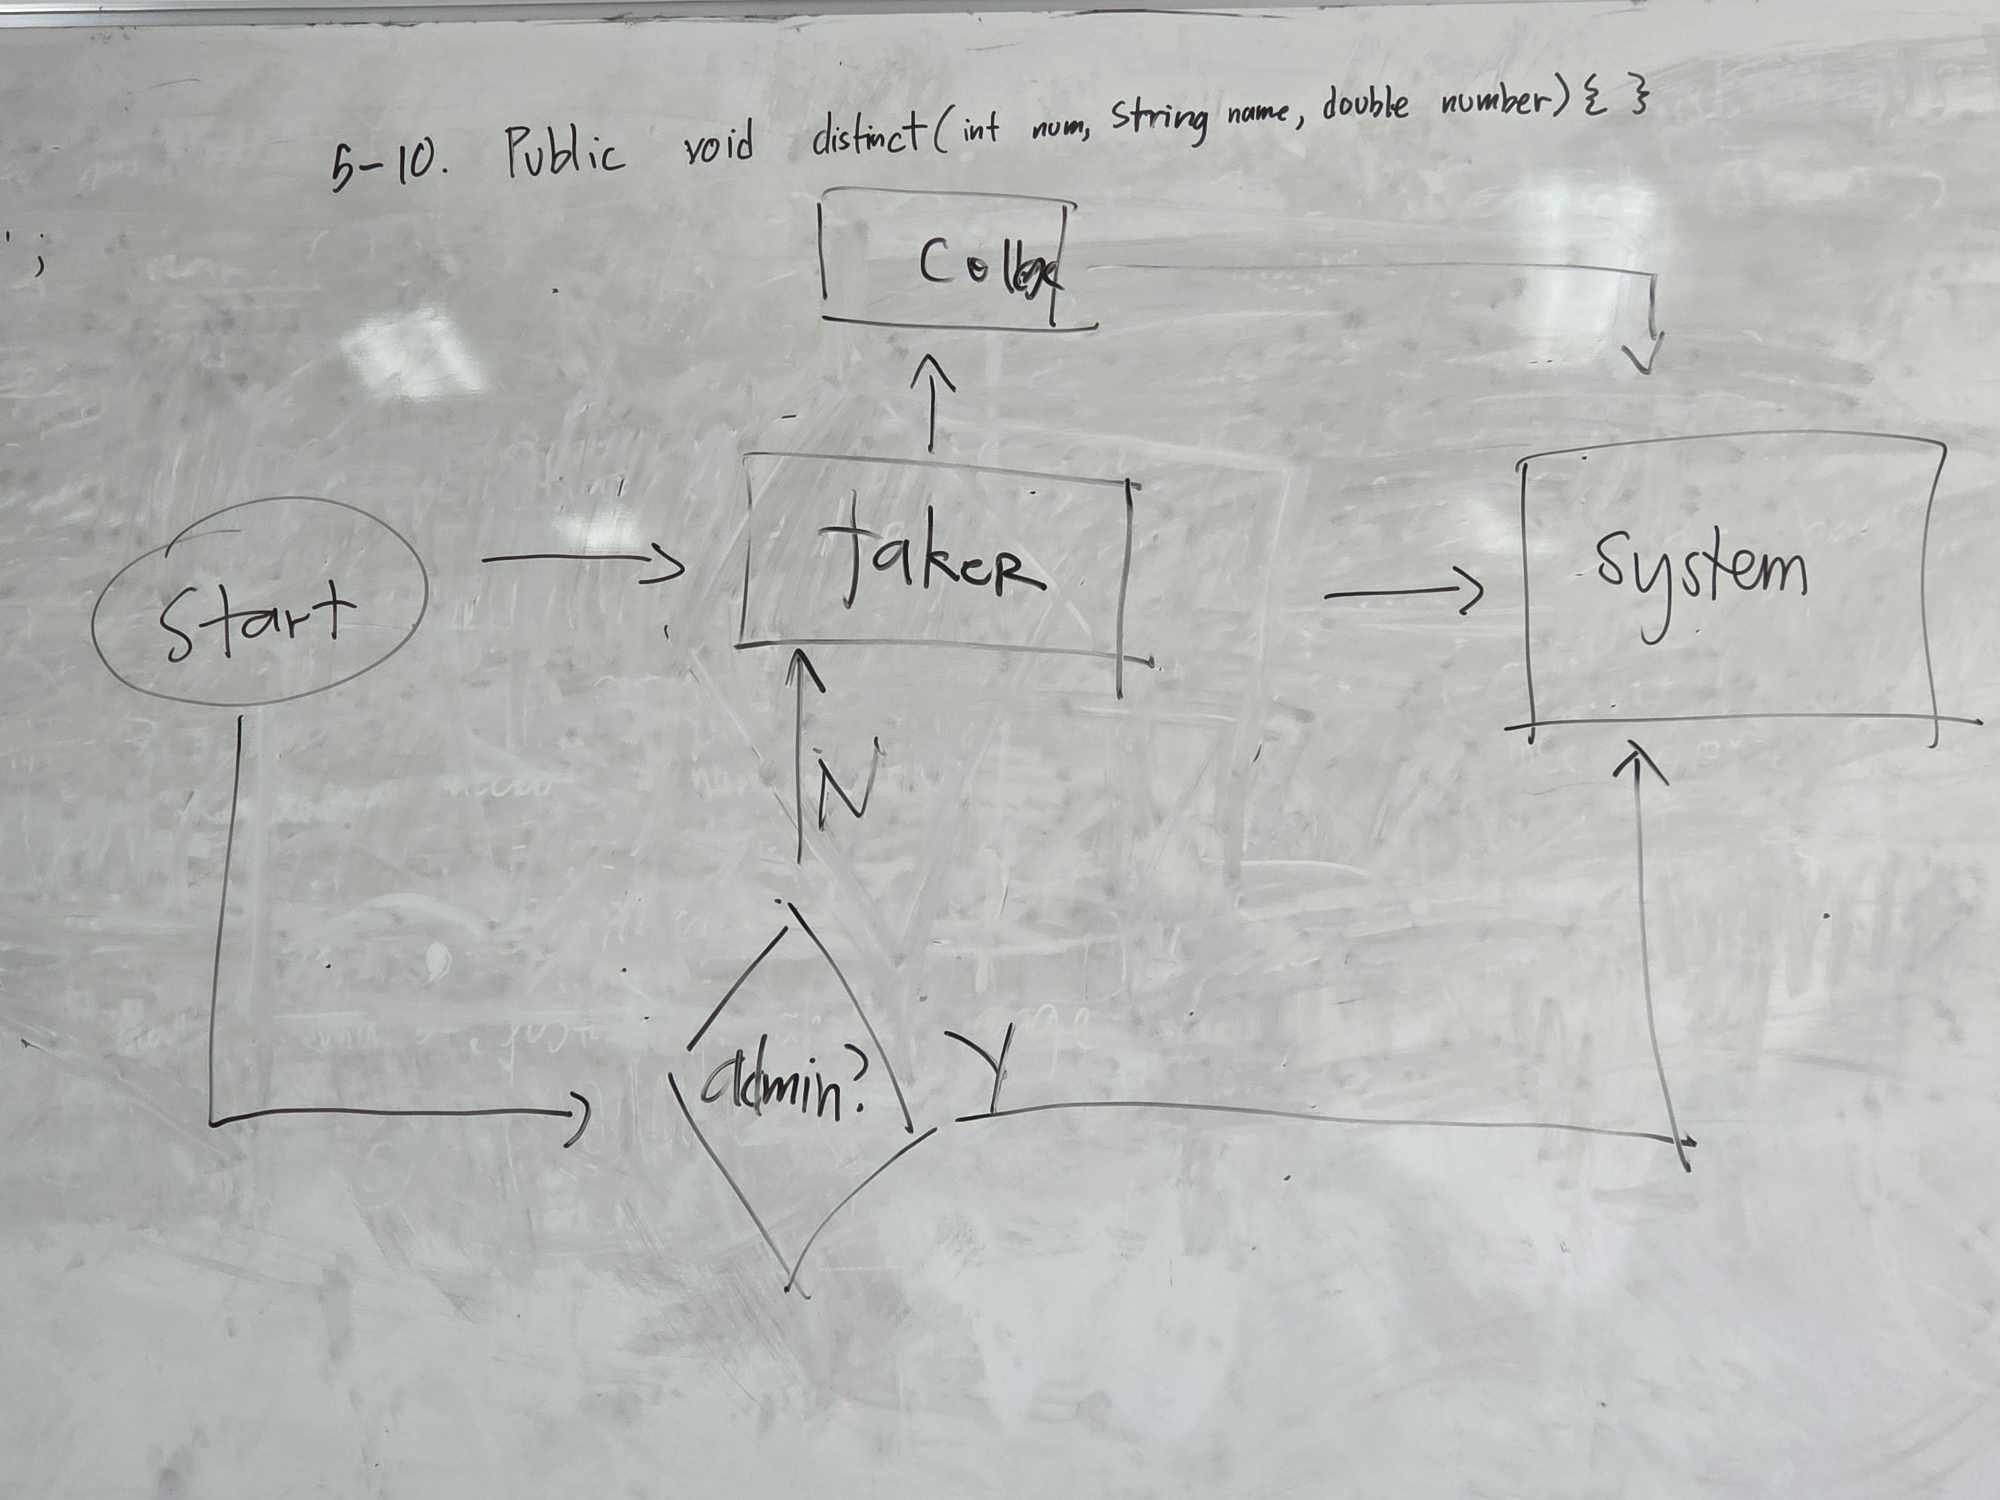 5-10. Public void distinct(int num, String name, double number) { }
' ;
Start
taker
system
N
admin?
Y